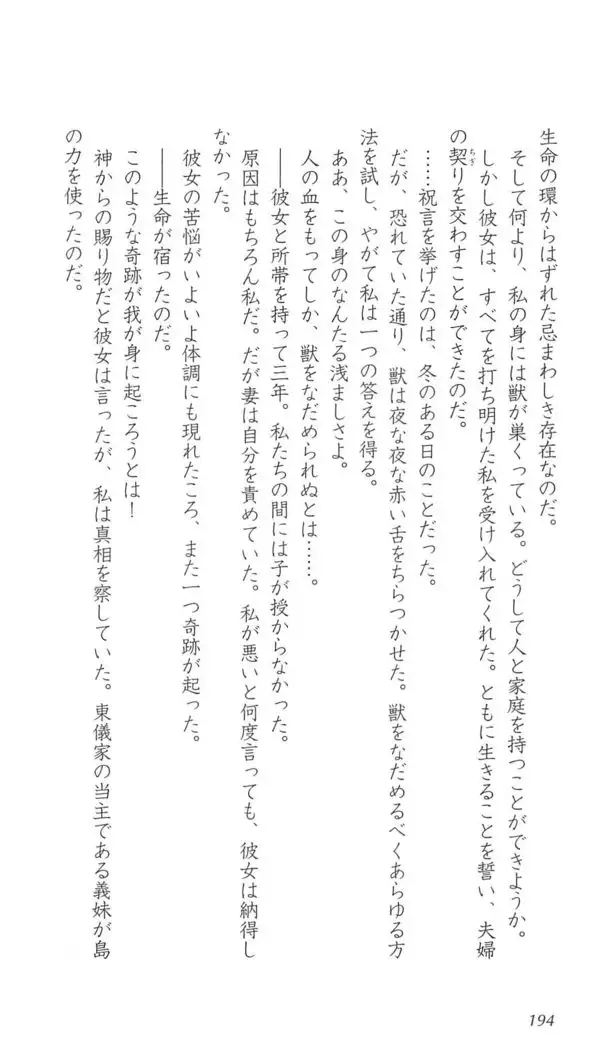 生命の環からはずれた忌まわしき存在なのだ。
そして何より、私の身には獣が巣くっている。どうして人と家庭を持つことができようか。
しかし彼女は、すべてを打ち明けた私を受け入れてくれた。ともに生きることを誓い、夫婦
の契りを交わすことができたのだ。
ちぎ
……祝言を挙げたのは、冬のある日のことだった。
だが、恐れていた通り、獣は夜な夜な赤い舌をちらつかせた。獣をなだめるべくあらゆる方
法を試し、やがて私は一つの答えを得る。
ああ、この身のなんたる浅ましさよ。
人の血をもってしか、獣をなだめられぬとは……。
――彼女と所帯を持って三年。私たちの間には子が授からなかった。
原因はもちろん私だ。だが妻は自分を責めていた。私が悪いと何度言っても、彼女は納得し
なかった。
彼女の苦悩がいよいよ体調にも現れたころ、また一つ奇跡が起った。
――生命が宿ったのだ。
このような奇跡が我が身に起ころうとは！
神からの賜り物だと彼女は言ったが、私は真相を察していた。東儀家の当主である義妹が島
の力を使ったのだ。
194